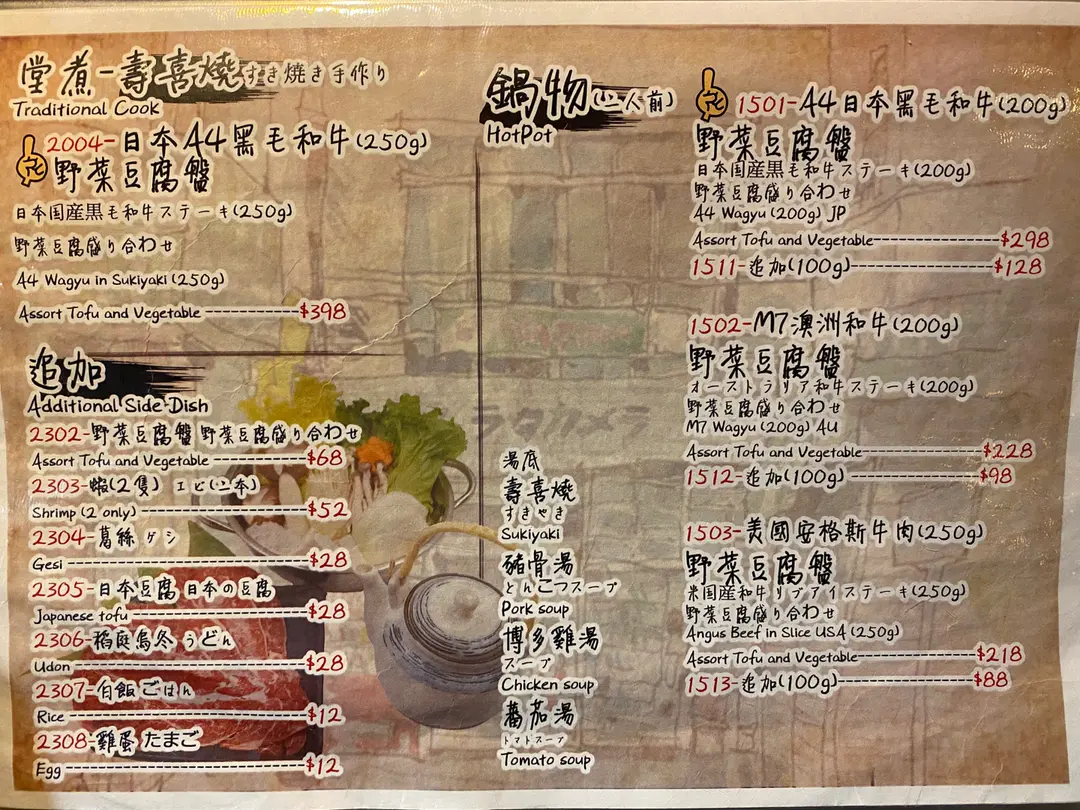 堂煮-壽喜燒すき焼き手作り
Traditional Cook
2004-日本A4黑毛和牛(250g)
野菜豆腐盤
日本国産黒毛和牛ステーキ(250g)
野菜豆腐盛り合わせ
A4 Wagyu in Sukiyaki (250g)
Assort Tofu and Vegetable -----------$398
追加
Additional Side-Dish
2302-野菜豆腐盤 野菜豆腐盛り合わせ
Assort Tofu and Vegetable -----------$68
2303-蝦(2隻) エビ(二本)
Shrimp (2 only) -------------------$52
2304-葛絲 ケシ
Gesi -----------------------------$28
2305-日本豆腐 日本の豆腐
Japanese tofu ---------------------$28
2306-稻庭烏冬 うどん
Udon ----------------------------$28
2307-白飯 ごはん
Rice -----------------------------$12
2308-雞蛋 たまご
Egg -----------------------------$12
鍋物(一二人前)
HotPot
湯底
壽喜燒
すきやき
Sukiyaki
豬骨湯
とんこつスープ
Pork soup
博多雞湯
スープ
Chicken soup
蕃茄湯
トマトスープ
Tomato soup
1501-A4日本黑毛和牛(200g)
野菜豆腐盤
日本国産黒毛和牛ステーキ(200g)
野菜豆腐盛り合わせ
A4 Wagyu (200g) JP
Assort Tofu and Vegetable---------------$298
1511-追加(100g)-----------------$128
1502-M7澳洲和牛(200g)
野菜豆腐盤
オーストラリア和牛ステーキ(200g)
野菜豆腐盛り合わせ
M7 Wagyu (200g) AU
Assort Tofu and Vegetable--------------$228
1512-追加(100g)----------------$98
1503-美國安格斯牛肉(250g)
野菜豆腐盤
米国産和牛リブアイステーキ(250g)
野菜豆腐盛り合わせ
Angus Beef in Slice USA (250g)
Assort Tofu and Vegetable--------------$218
1513-追加(100g)----------------$88